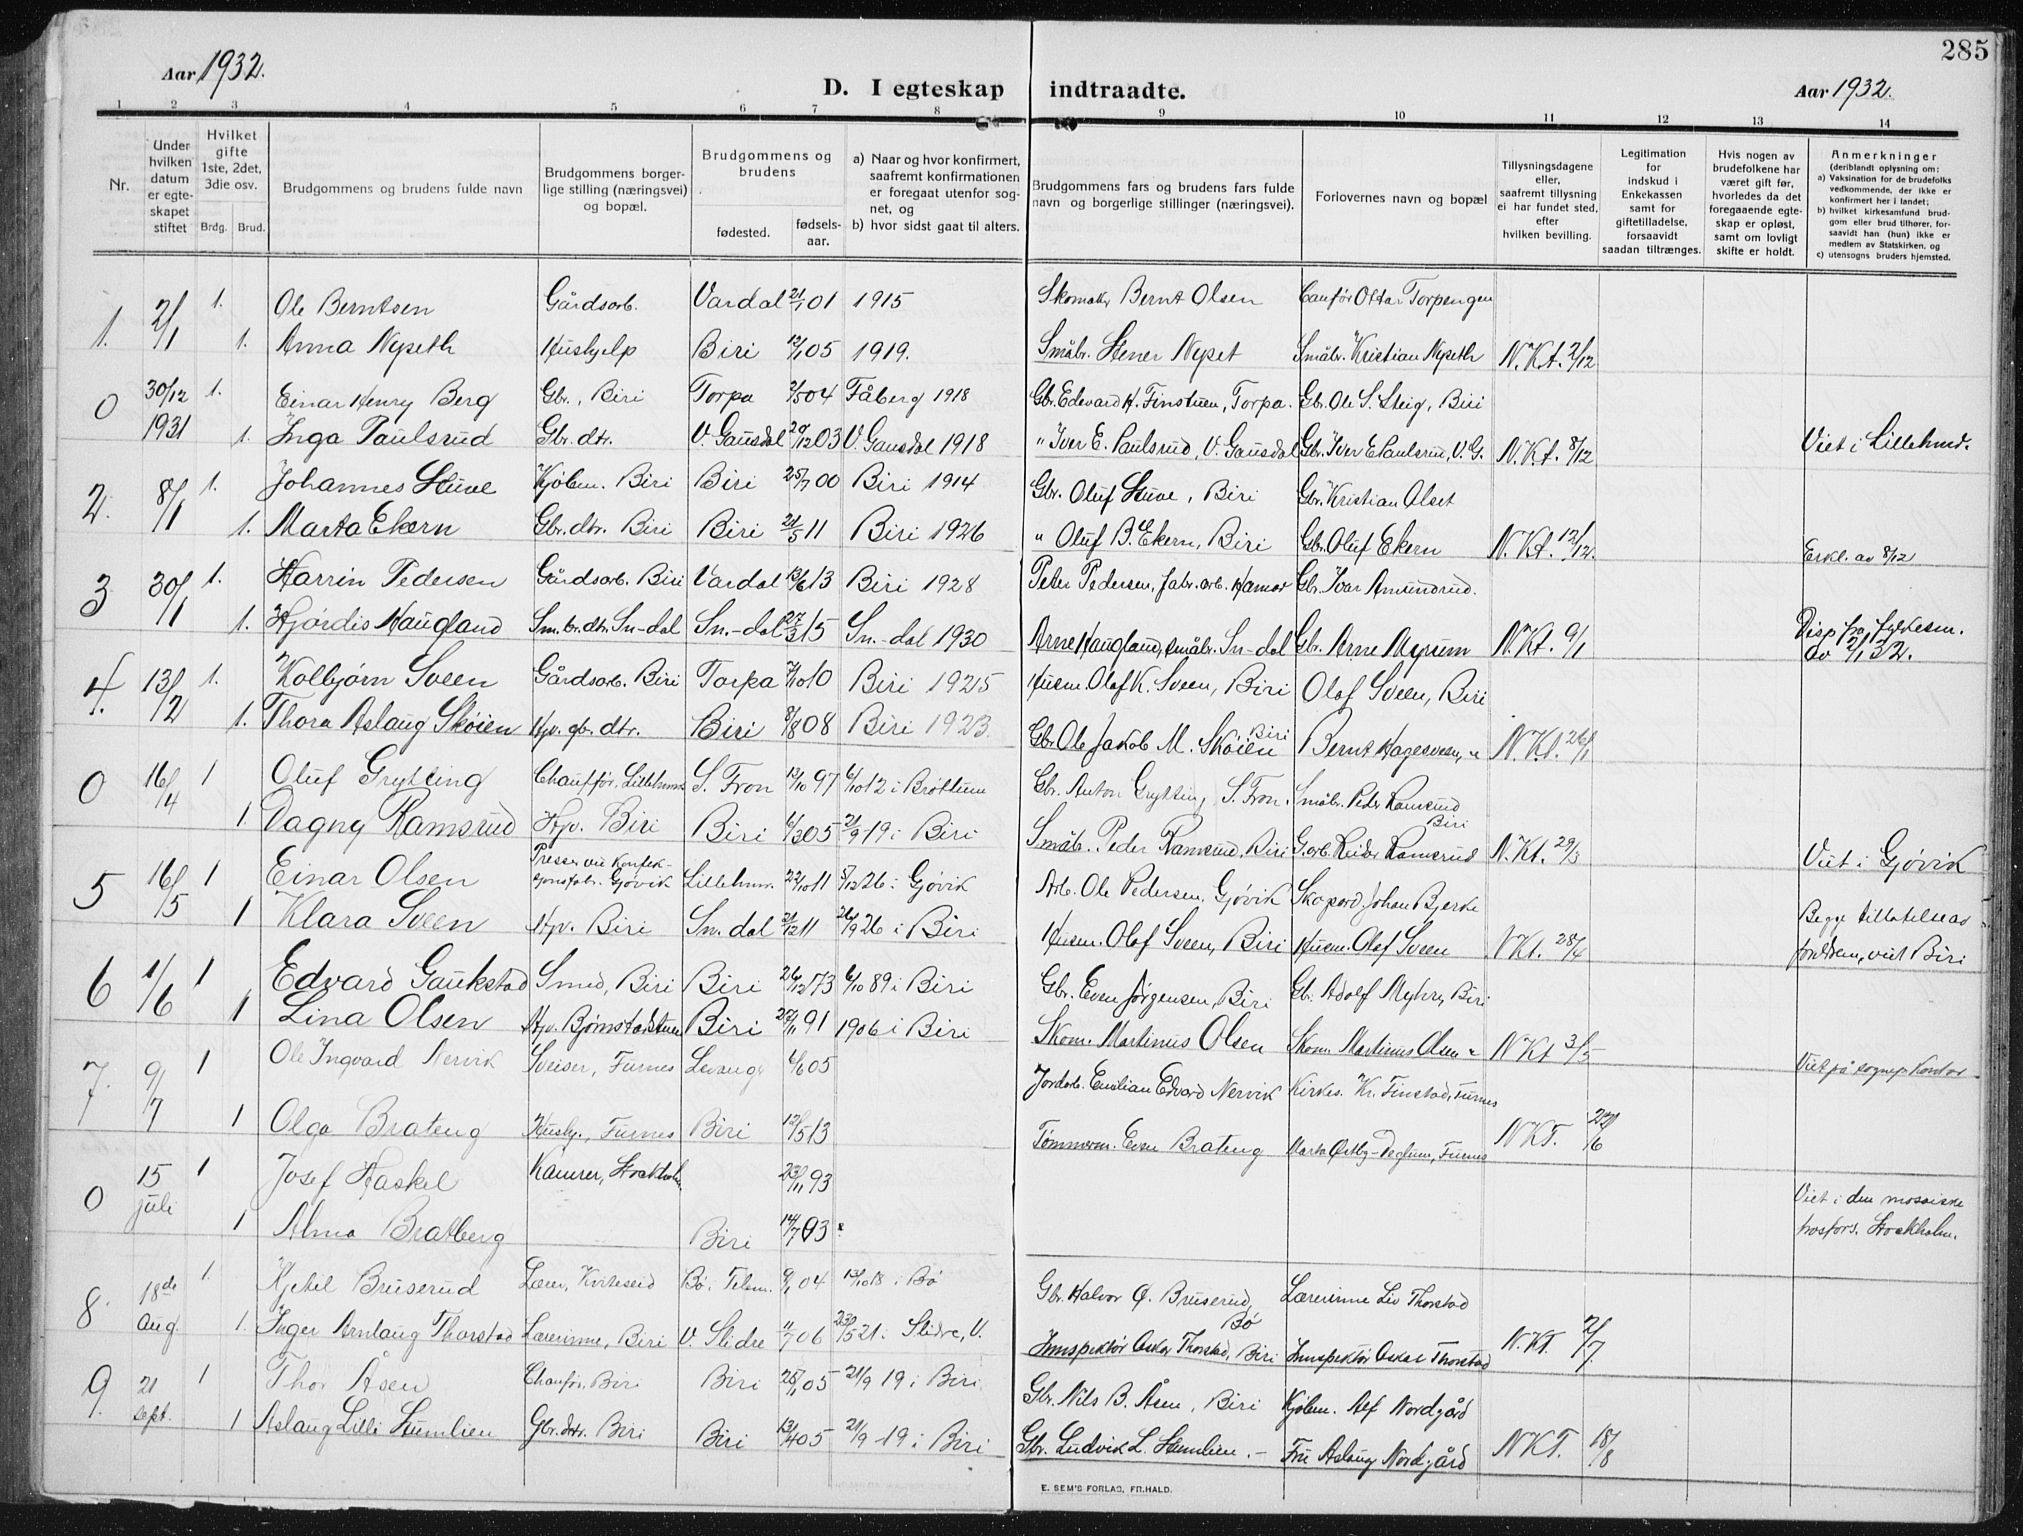 285
Aar 1932.
D. I egteskap indtraadte.
Aar 1932.
1 2 3 4 5 6 7 8 9 10 11 12 13 14
Nr.
Under hvilken datum er egteskapet stiftet
Hvilket gifte 1ste, 2det, 3die osv.
Brdg. Brud.
Brudgommens og brudens fulde navn
Brudgommens borgerlige stilling (næringsvei) og bopæl.
Brudgommens og brudens
fødested.
fødselsaar.
a) Naar og hvor konfirmert, saafremt konfirmationen er foregaat utenfor sognet, og
b) hvor sidst gaat til alters.
Brudgommens fars og brudens fars fulde navn og borgerlige stillinger (næringsvei).
Forlovernes navn og bopæl
Tillysningsdagene eller, saafremt tillysning ei har fundet sted, efter hvilken bevilling.
Legitimation for indskud i Enkekassen samt for giftetilladelse, forsaavidt saadan tiltrænges.
Hvis nogen av brudefolkene har været gift før, hvorledes da det foregaaende egteskap er opløst, samt om lovligt skifte er holdt.
Anmerkninger
(deriblandt oplysning om:
a) Vaksination for de brudefolks vedkommende, der ikke er konfirmert her i landet;
b) hvilket kirkesamfund brudgom eller brud tilhører, forsaavidt han (hun) ikke er medlem av Statskirken, og
c) utensogns bruders hjemsted.
1. 2/1 1. Ole Berntsen Gårdsarb. Vardal 21/7 01 1915 Skomaker Bernt Olsen Ottar Torpengen
1. Anna Nyseth Hushjelp Biri 05 1919. Småbr. Stener Nyset Småbr. Kristian Nyseth N.Kt. 2/12
0 30/12 1931 1. Einar Henry Berg Gbr., Biri Torpa 04 Fåberg 1918 Gbr. Edevard H. Finstuen, Torpa. Gbr. Ole S. Steig, Biri
1. Inga Paulsrud Gbr. dtr. V. Gausdal 03 V. Gausdal 1918 " Iver E. Paulsrud, V. Gausdal Gbr. Iver E Paulsrud, V. G. N.Kt. 8/12 Viet i Lillehmr.
2. 8/1 1. Johannes Stuve Kjøbm. Biri Biri 25/7 00 Biri 1914 Gbr. Oluf Stuve, Biri Gbr. Kristian Olset
1. Marta Ekern Gbr. dtr. Biri Biri 21/5 11 Biri 1926 " Oluf B. Ekern, Biri Gbr. Oluf Ekern N.Kt. 12/12.
3 30/1 1. Harrin Pedersen Gårdsarb. Biri Vardal 13/6 13 Biri 1928 Peter Pedersen, fabr. arb. Hamar Gbr. Ivar Amundrud. Erkl. av 8/12
1. Hjördis Haugland Sm. br. dtr. Sn-dal Sn.-dal 27/3 15 Sn.-dal 1930 Arne Haugland, småbr. Sn-dal Gbr. Arne Myrum N.Kt. 9/1 Disp fra fylkesm. av 2/1 32.
4. 13/2 1. Kolbjørn Sveen Gårdsarb. Biri Torpa 10 Biri 1925 Husm. Olaf K. Sveen, Biri Olaf Sveen, Biri
1. Thora Aslaug Skøien Hjv. gbr. dtr. Biri 08 Biri 1923. Gbr. Ole Jakob M. Skøien Biri Bernt Hagesveen, " N.Kt. 26/1
0 16/4 1 Oluf Grytting Chauffør, Lillehmr S. Fron 13/10 97 6/10 12 i Brøttum Gbr. Anton Grytting, S. Fron. Småbr. Peder Ramsrud Biri
1 Dagny Ramsrud Hjv. Biri Biri 6/3 05 21/9 19 i Biri Småbr. Peder Ramsrud, Biri G.arb. Ramsrud N.Kt. 29/3 Viet i Gjøvik
5 16/5 1 Einar Olsen Presser ved konfeksjonsfabr. Gjøvik Lillehmr. 22/10 11 8/12 26 i Gjøvik Arb. Ole Pedersen, Gjøvik Johan Bjerke
1 Klara Sveen Hjv. Biri Sn. dal 21/12 11 26/9 26 i Biri Husm. Olaf Sveen, Biri Husm. Olaf Sveen N.Kt. 28/4 Begge tillatelse av foreldrene, viet Biri
6 1/6 1 Edvard Gaukstad Smed, Biri Biri 26/12 73 6/10 89 i Biri Gbr. Even Jørgensen, Biri Gb. Adolf Myhre, Biri
1 Lina Olsen Hjv. Bjørnstadstuen Biri 91 1906 i Biri Skom. Martinus Olsen Skom. Martinus Olsen " N Kt 3/5
7. 9/7 1 Ole Ingvard Nervik Sveiser, Furnes Levanger 05 Jordarb. Emilian Edvard Nervik Kirkes. Kr. Finstad, Furnes Viet på sognepr. kontor
1 Olga Brateng Hushj., Furnes Biri 12/5 13 Tømmerm. Even Brateng Marta Østby-Deglum, Furnes N K T. 22/6
0 15 juli 1 Josef Haskel Kamrer, Stockholm 23/11 93
1 Alma Bratberg Biri 14/7 03 Viet i den mosaiske trosfors. Stockholm.
8. 18de Aug. 1. Kjetil Bruserud Lærer, Kviteseid Bø i Telem. 9/1 04 18 i Bø Gbr. Halvor Ø. Bruserud, Bø Lærerinne Liv Thorstad
1. Inger Arnlaug Thorstad Lærerinne, Biri V. Slidre 11/7 06 21 i Slidre, V. Innspektør Oskar Thorstad, Biri Innspektør Oskar Thorstad N.KT. 2/7.
9. 21 sept. 1 Thor Åsen Chauffør. Biri Biri 25/1 05 21/9 19 i Biri. Gbr. Nils B. Åsen, Biri Kjøbm. Alf Nordgård
1 Aslaug Lilli Stumlien Gbr. dtr. Biri Biri 13/4 05 21/9 19 i Biri Gbr. Ludvik L. Stumlien. - Fru Aslaug Nordgård N K T. 18/8
E. SEM'S FORLAG, FR.HALD.